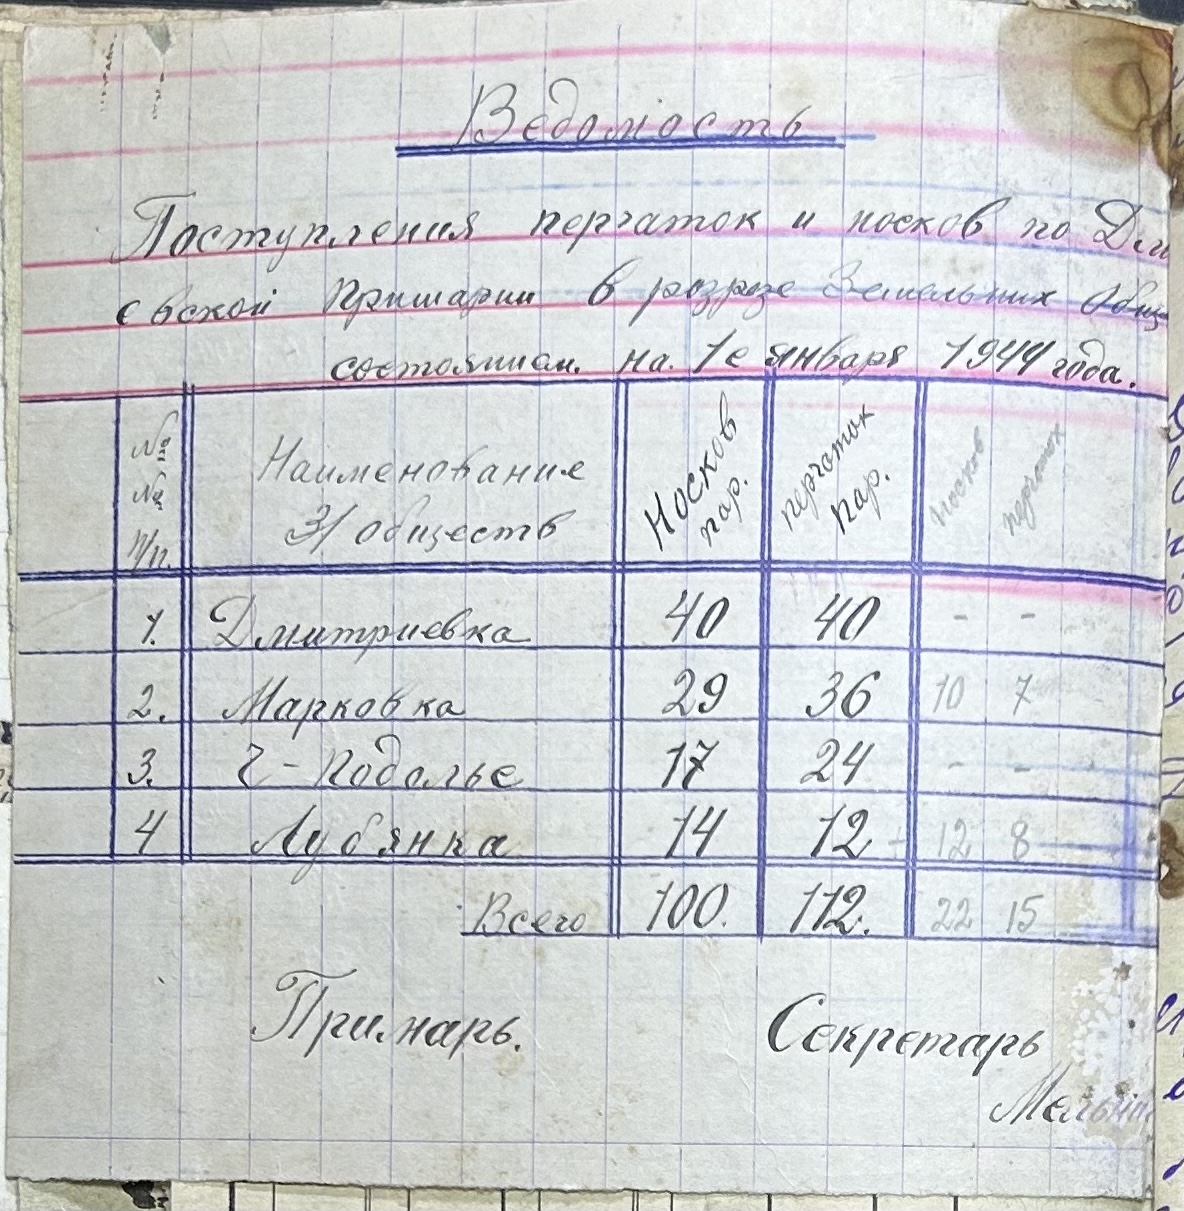 Ведомость
Поступления перчаток и носков по Дми
евской Примарии в розрозе Земельних Общ
состоянием на 1е января 1944 года.
№№ п/п. Наименование З/обществ Носков пар. перчаток пар. носков перчаток
1. Дмитриевка 40 40 - -
2. Марковка 29 36 10 7
3. Ч-Подолье 17 24 - -
4 Лубянка 14 12 12 8
Всего 100. 112. 22 15
Примарь. Секретарь
Мельни